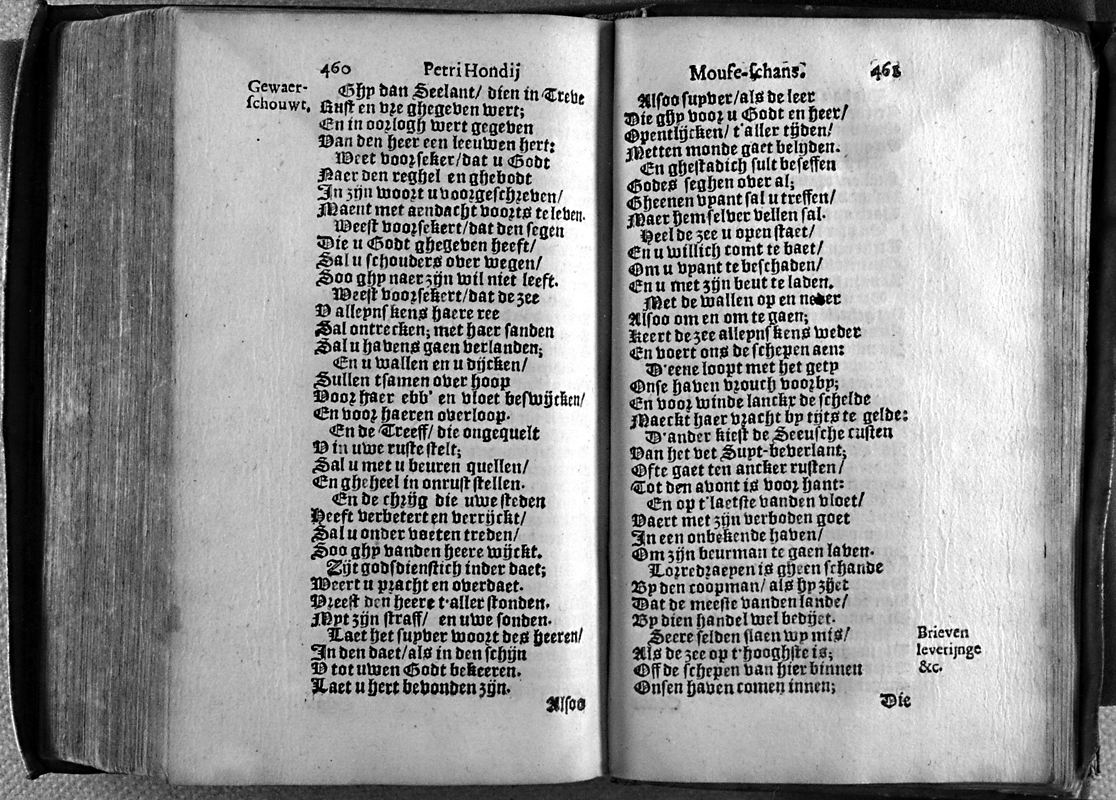 460 Petri Hondij
Gewaer-
schouwt.
Ghy dan Seelant/ dien in Treve
Rust en vre ghegeven wert;
En in oorlogh wert gegeven
Van den heer een leeuwen hert:
Weet voorseker/dat u Godt
Naer den reghel en ghebodt
In zijn woort u voorgeschreven/
Maent met aendacht voorts te leven.
Weest voorsekert/dat den segen
Die u Godt ghegeven heeft/
Sal u schouders over wegen/
Soo ghy naer zijn wil niet leeft.
Weest voorsekert/dat de zee
V alleynskens haere ree
Sal ontrecken; met haer sanden
Sal u havens gaen verlanden;
En u wallen en u dijcken/
Sullen tsamen over hoop
Voor haer ebb' en vloet beswijcken/
En voor haeren overloop.
En de Treeff/ die ongequelt
V in uwe ruste stelt;
Sal u met u beuren quellen/
En gheheel in onrust stellen.
En de chrijg die uwe steden
Heeft verbetert en verrijckt/
Sal u onder voeten treden/
Soo ghy vanden heere wijckt.
Zijt godsdienstich inder daet;
Weert u pracht en overdaet.
Vreest den heere t'aller stonden.
Myt zijn straff/ en uwe sonden.
Laet het suyver woort des heeren/
In den daet/als in den schijn
V tot uwen Godt bekeeren.
Laet u hert bevonden zijn.
Alsoo
Mouse-schans. 461
Alsoo suyver/als de leer
Die ghy voor u Godt en heer/
Opentlijcken/ t'aller tijden/
Metten monde gaet belyden.
En ghestadich sult beseffen
Godes seghen over al;
Gheenen vyant sal u treffen/
Maer hem selver vellen sal.
Heel de zee u open staet/
En u willich comt te baet/
Om u vyant te beschaden/
En u met zijn beut te laden.
Met de wallen op en neder
Alsoo om en om te gaen;
Keert de zee alleynskens weder
En voert ons de schepen aen:
D'eene loopt met het gety
Onse haven vrouch voorby;
En voor winde lanckr de schelde
Maeckt haer vracht by tijts te gelde:
D'ander kiest de Seeusche custen
Van het vet Suyt-beverlant;
Ofte gaet ten ancker rusten/
Tot den avont is voor hant:
En op t'laetste vanden vloet/
Vaert met zijn verboden goet
In een onbekende haven/
Om zijn beurman te gaen laven.
Lorredraepen is gheen schande
By den coopman/ als hy zhet
Dat de meeste vanden lande/
By dien handel wel bedijet.
Seere selden slaen wy mis/
Als de zee op t'hooghste is;
Off de schepen van hier binnen
Onsen haven comen innen;
Brieven
leverijnge
&c.
Die